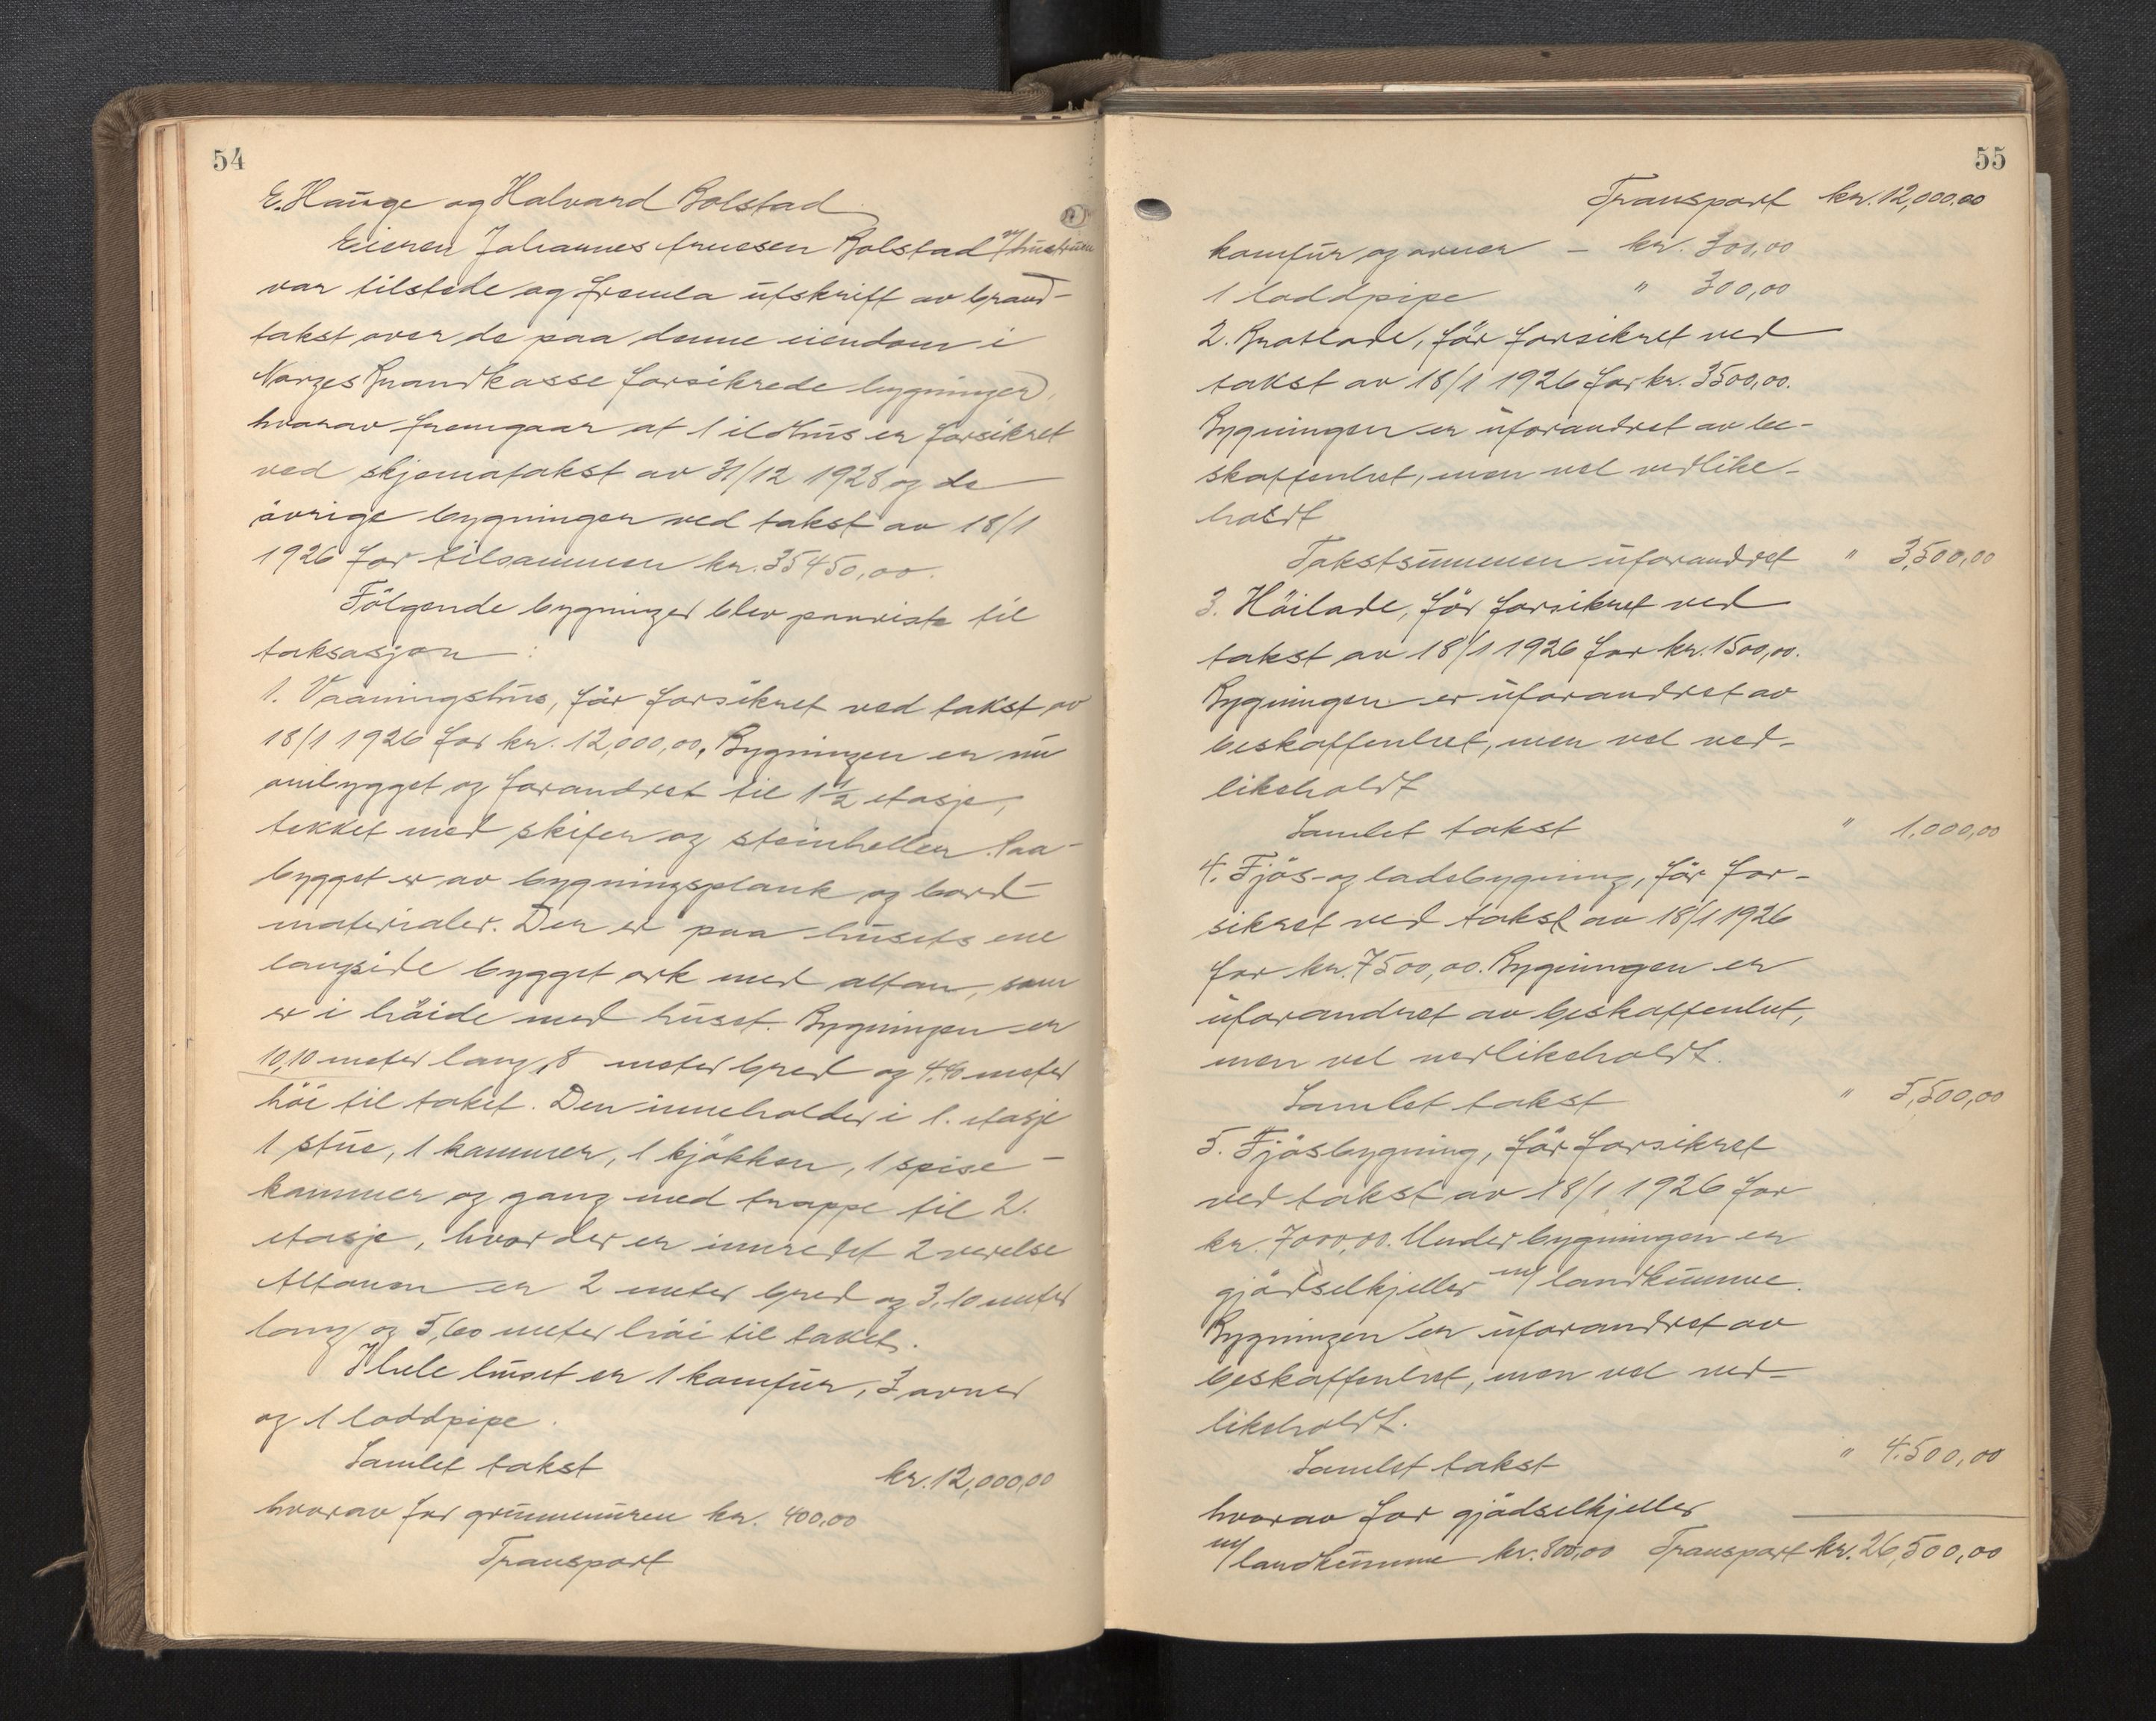 54
E. Hauge og Halvard Bolstad
Eieren Johannes Arnesen Bolstad m/hustru
var tilstede og fremla utskrift av brand-
takst over de paa denne eiendom i
Norges Brandkasse forsikrede bygninger,
hvorav fremgaar at 1 ildhus er forsikret
ved skjematakst av 31/12 1928 og de
øvrige bygninger ved takst av 18/1
1926 for tilsammen kr. 35450,00.
Følgende bygninger blev paaviste til
taksasjon:
1. Vaaningshus, før forsikret ved takst av
18/1 1926 for kr. 12,000,00. Bygningen er nu
ombygget og forandret til 1 1/2 etasje,
tekket med skifer og steinheller. Paa-
bygget er av bygningsplank og bord-
materialer. Der er paa husets ene
langside bygget ark med altan, som
er i høide med huset. Bygningen er
10,10 meter lang, 8 meter bred og 4.40 meter
høi til taket. Den inneholder i 1. etasje
1 stue, 1 kammer, 1 kjøkken, 1 spise-
kammer og gang med trappe til 2.
etasje, hvor der er innredet 2 værelse
Altanen er 2 meter bred og 3,10 meter
lang og 5,60 meter høi til taket.
I hele huset er 1 komfur, 3 ovner
og 1 loddpipe.
Samlet takst kr. 12,000,00
hvorav for grunnmuren kr. 400,00
Transport
55
Transport kr. 12,000.00
komfur og ovner - kr. 300,00
1 loddpipe " 300,00
2. Bratlade, før forsikret ved
takst av 18/1 1926 for kr. 3500,00.
Bygningen er uforandret av be-
skaffenhet, men vel vedlike-
holdt
Takstsummen uforandret " 3,500,00
3. Høilade, før forsikret ved
takst av 18/1 1926 for kr. 1500,00.
Bygningen er uforandret av
beskaffenhet, men vel ved-
likeholdt
Samlet takst " 1,000,00
4. Fjøs- og ladebygning, før for-
sikret ved takst av 18/1 1926
for kr. 7500,00. Bygningen er
uforandret av beskaffenhet,
men vel vedlikeholdt.
Samlet takst " 5,500,00
5. Fjøsbygning, før forsikret
ved takst av 18/1 1926 for
kr. 7000,00. Underbygningen er
gjødselkjeller m/ landkumme.
Bygningen er uforandret av
beskaffenhet, men vel ved-
likeholdt.
Samlet takst " 4.500,00
hvorav for gjødselkjeller
m/ landkumme kr. 800,00 Transport kr. 26,500,00